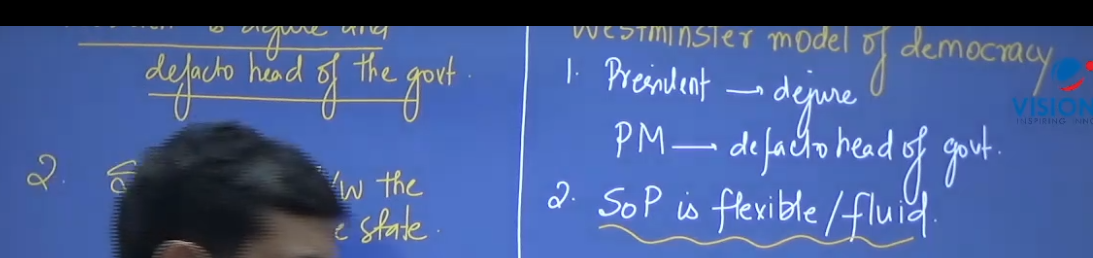 is dejure and
defacto head of the govt.
2.
/w the
state.
Westminster model of democracy
1. President → dejure
PM — defacto head of govt.
2. SoP is flexible/fluid.
VISION
INSPIRING